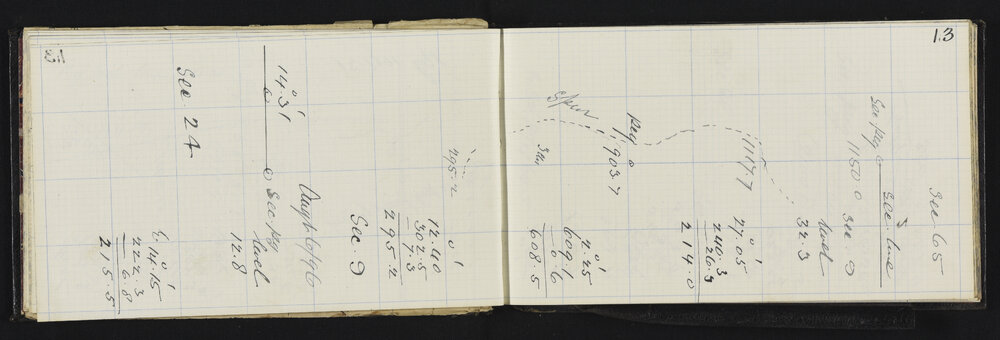 13
Sec 65
Sec line
Sec peg
1150.0
Sec 9
level
32.3
1117.7
27.05
240.3
26.3
214.0
peg
903.7
Spur
2.25
609.1
0.6
608.5
295.2
12.40
302.5
7.3
295.2
Sec 9
14.31
Sec peg
level
12.8
Sec. 24
14.15
222.3
6.8
215.5